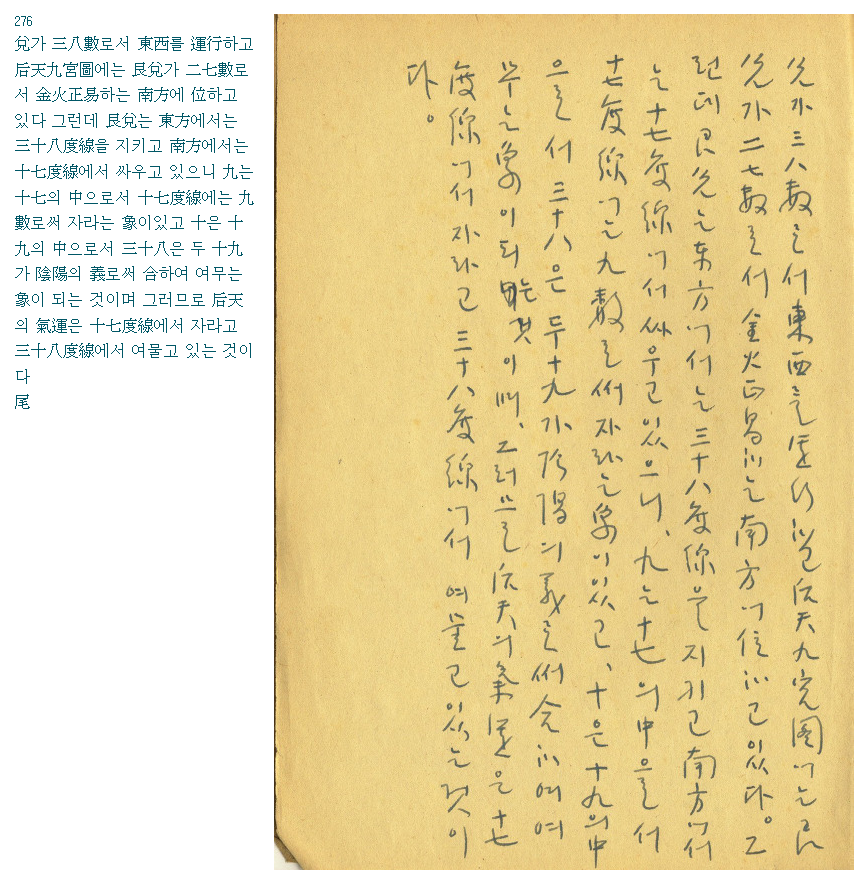 276
兌가 三八數로서 東西를 運行하고
后天九宮圖에는 艮兌가 二七數로
서 金火正易하는 南方에 位하고
있다 그런데 艮兌는 東方에서는
三十八度線을 지키고 南方에서는
十七度線에서 싸우고 있으니 九는
十七의 中으로서 十七度線에는 九
數로써 자라는 象이있고 十은 十
九의 中으로서 三十八은 두 十九
가 陰陽의 義로써 合하여 여무는
象이 되는 것이며 그러므로 后天
의 氣運은 十七度線에서 자라고
三十八度線에서 여물고 있는 것이
다
尾
兌가 三八數로서 東西를 運行하고 后天九宮圖에는 艮
兌가 二七數로서 金火正易하는 南方에 位하고 있다。그
런데 艮兌는 东方에서는 三十八度線을 지키고 南方에서
는 十七度線에서 싸우고 있으니、九는 十七의 中으로서
十七度線에는 九數로써 자라는 象이있고、十은 十九의 中
으로서 三十八은 두 十九가 陰陽의 義로써 合하여 여
무는 象이 되는 것이며、그러므로 后天의 氣運은 十七
度線에서 자라고 三十八度線에서 여물고 있는 것이
다。